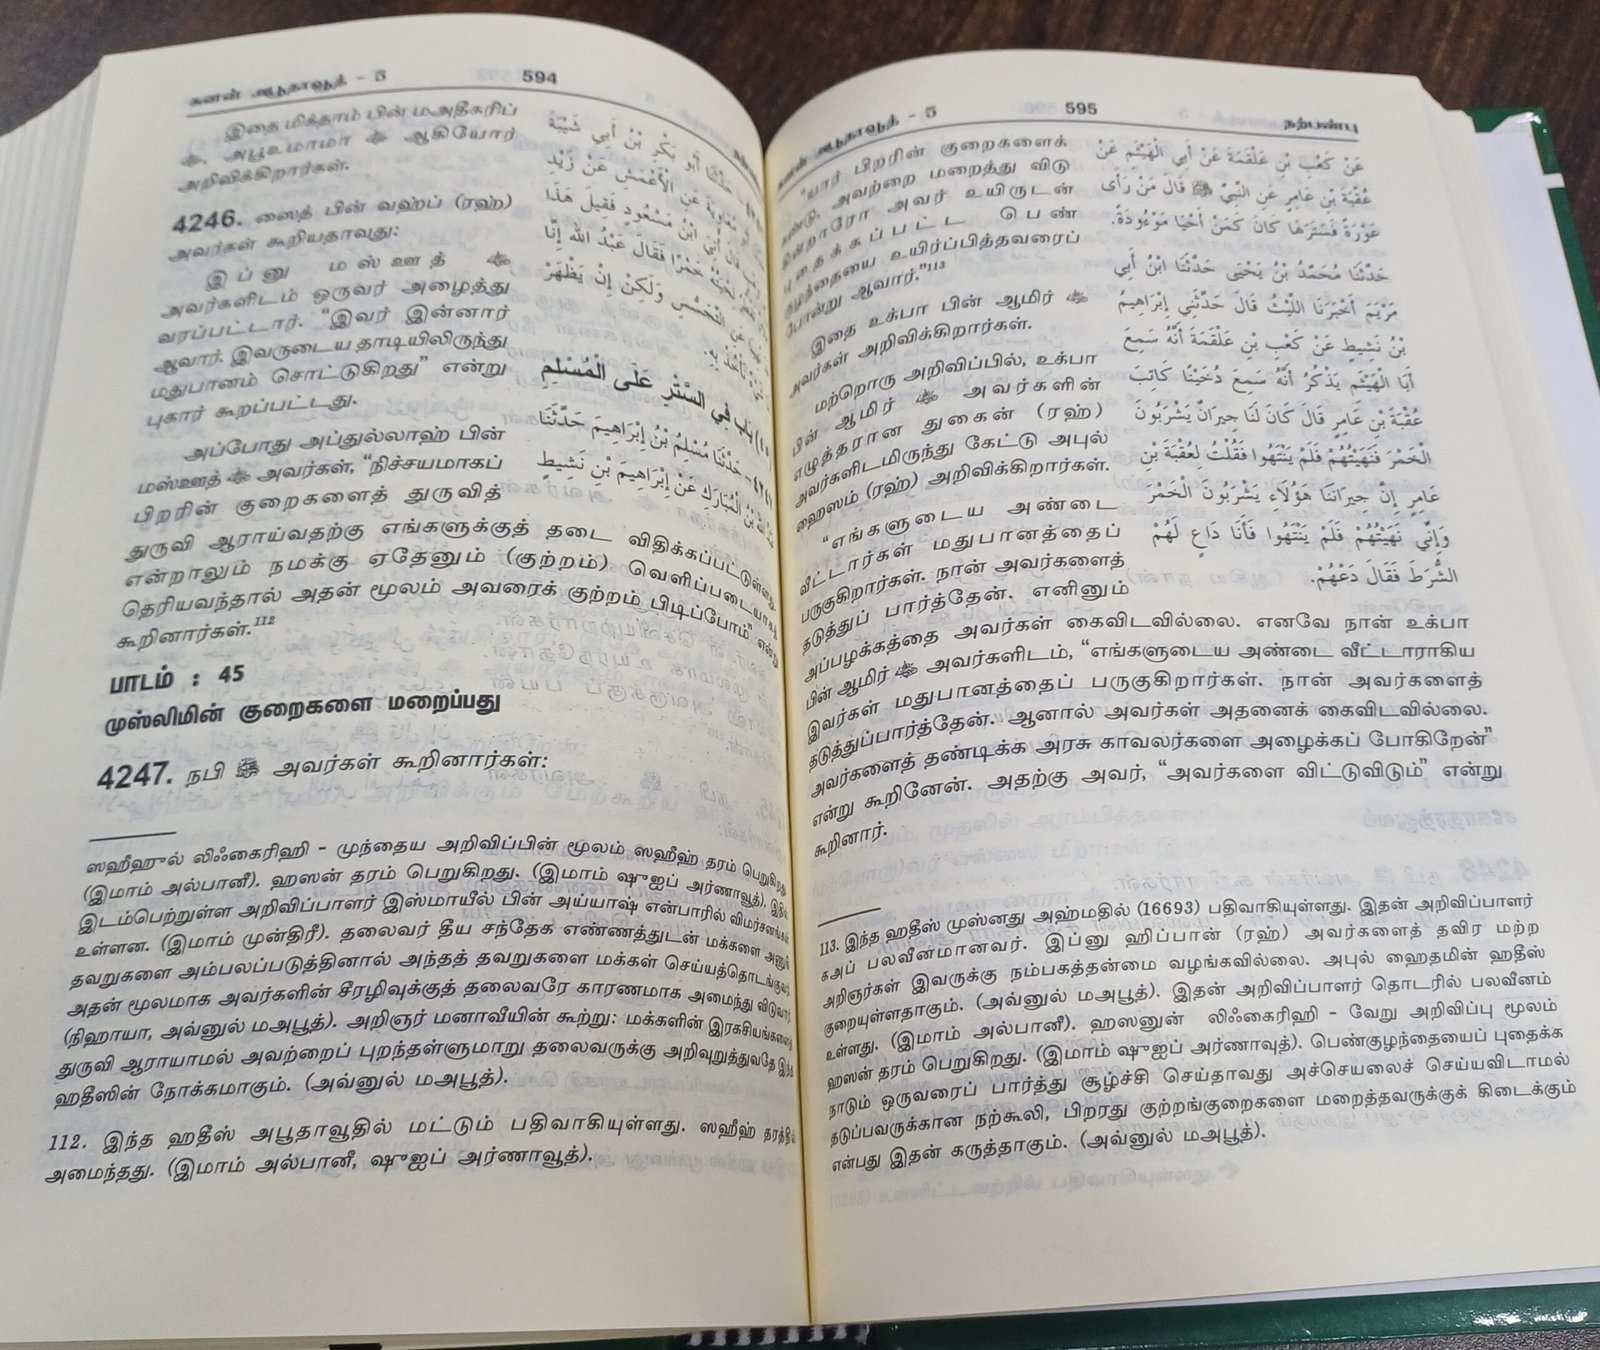 சுனன் அபூதாவூத் - 5
594
இதை மிக்தாம் பின் மஅதீகரிப்
ﷺ, அபூஉமாமா ﷺ ஆகியோர்
அறிவிக்கிறார்கள்.
4246. ஸைத் பின் வஹ்ப் (ரஹ்)
அவர்கள் கூறியதாவது:
இப்னு மஸ்ஊத்
அவர்களிடம் ஒருவர் அழைத்து
வரப்பட்டார். “இவர் இன்னார்
ஆவார். இவருடைய தாடியிலிருந்து
மதுபானம் சொட்டுகிறது” என்று
புகார் கூறப்பட்டது.
அப்போது அப்துல்லாஹ் பின்
மஸ்ஊத் அவர்கள், “நிச்சயமாகப்
பிறரின் குறைகளைத் துருவித்
துருவி ஆராய்வதற்கு எங்களுக்குத் தடை விதிக்கப்பட்டுள்ளது.
என்றாலும் நமக்கு ஏதேனும் (குற்றம்) வெளிப்படையாகத்
தெரியவந்தால் அதன் மூலம் அவரைக் குற்றம் பிடிப்போம்” என்று
கூறினார்கள்.112
حَدَّثَنَا أَبُو بَكْرِ بْنُ أَبِي شَيْبَةَ
مُعَاوِيَةَ عَنِ الْأَعْمَشِ عَنْ زَيْدِ
قَالَ أُتِيَ ابْنُ مَسْعُودٍ فَقِيلَ هَذَا
لِحْيَتُهُ خَمْرًا فَقَالَ عَبْدُ اللَّهِ إِنَّا
عَنِ التَّجَسُّسِ وَلَكِنْ إِنْ يَظْهَرْ
نَأْخُذْ بِهِ.
(٤٥) بَاب فِي السَّتْرِ عَلَى الْمُسْلِمِ
٤٢٤٧- حَدَّثَنَا مُسْلِمُ بْنُ إِبْرَاهِيمَ حَدَّثَنَا
عَبْدُ اللَّهِ بْنُ الْمُبَارَكِ عَنْ إِبْرَاهِيمَ بْنِ نَشِيطٍ
பாடம் : 45
முஸ்லிமின் குறைகளை மறைப்பது
4247. நபி ﷺ அவர்கள் கூறினார்கள்:
ஸஹீஹுல் லிஃகைரிஹி - முந்தைய அறிவிப்பின் மூலம் ஸஹீஹ் தரம் பெறுகிறது
(இமாம் அல்பானீ). ஹஸன் தரம் பெறுகிறது. (இமாம் ஷுஐப் அர்ணாவூத்). இதில்
இடம்பெற்றுள்ள அறிவிப்பாளர் இஸ்மாயீல் பின் அய்யாஷ் என்பாரில் விமர்சனங்கள்
உள்ளன. (இமாம் முன்திரீ). தலைவர் தீய சந்தேக எண்ணத்துடன் மக்களை அணுகி
தவறுகளை அம்பலப்படுத்தினால் அந்தத் தவறுகளை மக்கள் செய்யத்தொடங்குவர்.
அதன் மூலமாக அவர்களின் சீரழிவுக்குத் தலைவரே காரணமாக அமைந்து விடுவார்.
(நிஹாயா, அவ்னுல் மஅபூத்). அறிஞர் மனாவீயின் கூற்று: மக்களின் இரகசியங்களைத்
துருவி ஆராயாமல் அவற்றைப் புறந்தள்ளுமாறு தலைவருக்கு அறிவுறுத்துவதே இந்த
ஹதீஸின் நோக்கமாகும். (அவ்னுல் மஅபூத்).
112. இந்த ஹதீஸ் அபூதாவூதில் மட்டும் பதிவாகியுள்ளது. ஸஹீஹ் தரத்தில்
அமைந்தது. (இமாம் அல்பானீ, ஷுஐப் அர்ணாவூத்).
சுனன் அபூதாவூத் - 5
595
நற்பண்பு
“யார் பிறரின் குறைகளைக்
கண்டு, அவற்றை மறைத்து விடு
கின்றாரோ அவர் உயிருடன்
புதைக்கப்பட்ட பெண்
குழந்தையை உயிர்ப்பித்தவரைப்
போன்று ஆவார்.”113
இதை உக்பா பின் ஆமிர்
அவர்கள் அறிவிக்கிறார்கள்.
மற்றொரு அறிவிப்பில், உக்பா
பின் ஆமிர் அவர்களின்
எழுத்தரான துகைன் (ரஹ்)
அவர்களிடமிருந்து கேட்டு அபுல்
ஹைஸம் (ரஹ்) அறிவிக்கிறார்கள்.
“எங்களுடைய அண்டை
வீட்டார்கள் மதுபானத்தைப்
பருகுகிறார்கள். நான் அவர்களைத்
தடுத்துப் பார்த்தேன். எனினும்
அப்பழக்கத்தை அவர்கள் கைவிடவில்லை. எனவே நான் உக்பா
பின் ஆமிர் அவர்களிடம், “எங்களுடைய அண்டை வீட்டாராகிய
இவர்கள் மதுபானத்தைப் பருகுகிறார்கள். நான் அவர்களைத்
தடுத்துப்பார்த்தேன். ஆனால் அவர்கள் அதனைக் கைவிடவில்லை.
அவர்களைத் தண்டிக்க அரசு காவலர்களை அழைக்கப் போகிறேன்”
என்று கூறினேன். அதற்கு அவர், “அவர்களை விட்டுவிடும்” என்று
கூறினார்.
عَنْ كَعْبِ بْنِ عَلْقَمَةَ عَنْ أَبِي الْهَيْثَمِ عَنْ
عُقْبَةَ بْنِ عَامِرٍ عَنِ النَّبِيِّ ﷺ قَالَ مَنْ رَأَى
عَوْرَةً فَسَتَرَهَا كَانَ كَمَنْ أَحْيَا مَوْءُودَةً.
حَدَّثَنَا مُحَمَّدُ بْنُ يَحْيَى حَدَّثَنَا ابْنُ أَبِي
مَرْيَمَ أَخْبَرَنَا اللَّيْثُ قَالَ حَدَّثَنِي إِبْرَاهِيمُ
بْنُ نَشِيطٍ عَنْ كَعْبِ بْنِ عَلْقَمَةَ أَنَّهُ سَمِعَ
أَبَا الْهَيْثَمِ يَذْكُرُ أَنَّهُ سَمِعَ دُخَيْنًا كَاتِبَ
عُقْبَةَ بْنِ عَامِرٍ قَالَ كَانَ لَنَا جِيرَانٌ يَشْرَبُونَ
الْخَمْرَ فَنَهَيْتُهُمْ فَلَمْ يَنْتَهُوا فَقُلْتُ لِعُقْبَةَ بْنِ
عَامِرٍ إِنَّ جِيرَانَنَا هَؤُلَاءِ يَشْرَبُونَ الْخَمْرَ
وَإِنِّي نَهَيْتُهُمْ فَلَمْ يَنْتَهُوا فَأَنَا دَاعٍ لَهُمُ
الشُّرَطَ فَقَالَ دَعْهُمْ.
113. இந்த ஹதீஸ் முஸ்னது அஹ்மதில் (16693) பதிவாகியுள்ளது. இதன் அறிவிப்பாளர்
கஅப் பலவீனமானவர். இப்னு ஹிப்பான் (ரஹ்) அவர்களைத் தவிர மற்ற
அறிஞர்கள் இவருக்கு நம்பகத்தன்மை வழங்கவில்லை. அபுல் ஹைதமின் ஹதீஸ்
குறையுள்ளதாகும். (அவ்னுல் மஅபூத்). இதன் அறிவிப்பாளர் தொடரில் பலவீனம்
உள்ளது. (இமாம் அல்பானீ). ஹஸனுன் லிஃகைரிஹி - வேறு அறிவிப்பு மூலம்
ஹஸன் தரம் பெறுகிறது. (இமாம் ஷுஐப் அர்ணாவுத்). பெண்குழந்தையைப் புதைக்க
நாடும் ஒருவரைப் பார்த்து சூழ்ச்சி செய்தாவது அச்செயலைச் செய்யவிடாமல்
தடுப்பவருக்கான நற்கூலி, பிறரது குற்றங்குறைகளை மறைத்தவருக்குக் கிடைக்கும்
என்பது இதன் கருத்தாகும். (அவ்னுல் மஅபூத்).